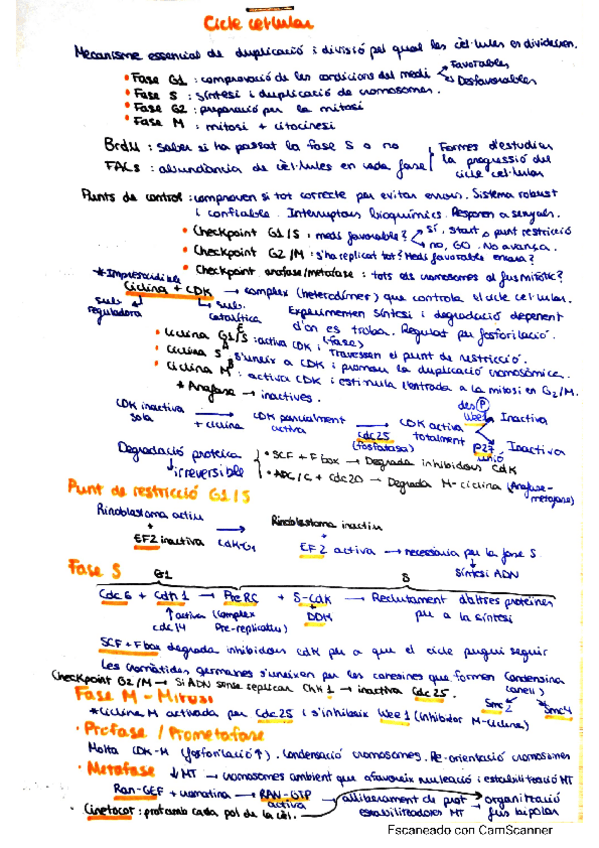 Cicle cel·lular
Mecanisme essencial de duplicació i divisió pel qual les cèl·lules es divideixen.
• Fase G1 : comprovació de les condicions del medi Favorables Desfavorables
• Fase S : síntesi i duplicació de cromosomes.
• Fase G2 : preparació per la mitosi
• Fase M : mitosi + citocinesi
BrdU : saber si ha passat la fase S o no
FACs : abundància de cèl·lules en cada fase
Formes d'estudiar
la progressió del
cicle cel·lular
Punts de control : comproven si tot correcte per evitar errors. Sistema robust
i confiable. Interruptors bioquímics. Responen a senyals.
• Checkpoint G1/S : medi favorable? sí, start o punt restricció
no, G0. No avança.
• Checkpoint G2/M : s'ha replicat tot? Medi favorable encara?
• Checkpoint anafase/metafase : tots els cromosomes al fus mitòtic?
*Imprescindible
Ciclina + CDK → complex (heterodímer) que controla el cicle cel·lular.
sub. reguladora
sub. catalítica
Experimenten síntesi i degradació depenent
d'on es troba. Regulat per fosforilació.
• Ciclina G1/S : activa CDK i (fase) Travessen el punt de restricció.
• Ciclina S : s'uneix a CDK i promou la duplicació cromosòmica.
• Ciclina M : activa CDK i estimula l'entrada a la mitosi en G2/M.
* Anafase → inactives.
CDK inactiva sola → + ciclina CDK parcialment activa → cdc25 (fosfatasa) CDK activa totalment
des P
Wee1 Inactiva
P27 unió Inactiva
Degradació proteica
↓ irreversible
• SCF + F box → Degrada inhibidors CdK
• APC/C + Cdc20 → Degrada M-ciclina (Anafase-metafase)
Punt de restricció G1/S
Rinoblastoma actiu + EF2 inactiva
CdK-G1 →
Rinoblastoma inactiu + EF2 activa → necessària per la fase S
↓ Síntesi ADN
Fase S
G1
S
Cdc6 + Cdh1 → PreRC + S-CdK → Reclutament d'altres proteïnes
per a la síntesi
↑ activa cdc14
(complex Pre-replicatiu)
+ DDK
SCF + Fbox degrada inhibidors cdK per a que el cicle pugui seguir
Les cromàtides germanes s'uneixen per les
Checkpoint G2/M → Si ADN sense replicar Chk1 → inactiva Cdc25.
Smc2
Smc4
Fase M - Mitosi
*Ciclina M activada per Cdc25 i s'inhibeix Wee1 (inhibidor M-ciclina)
• Profase / Prometafase
Molta CDK-M (fosforilació ↑). Condensació cromosomes. Re-orientació cromosomes
• Metafase ↓ MT → cromosomes ambient que afavoreix nucleació i estabilització MT
Ran-GEF + cromatina → RAN-GTP activa → alliberament de prot estabilitzadores MT → organització fus bipolar
• Cinetocor : prot amb cada pol de la cèl.
Escaneado con CamScanner